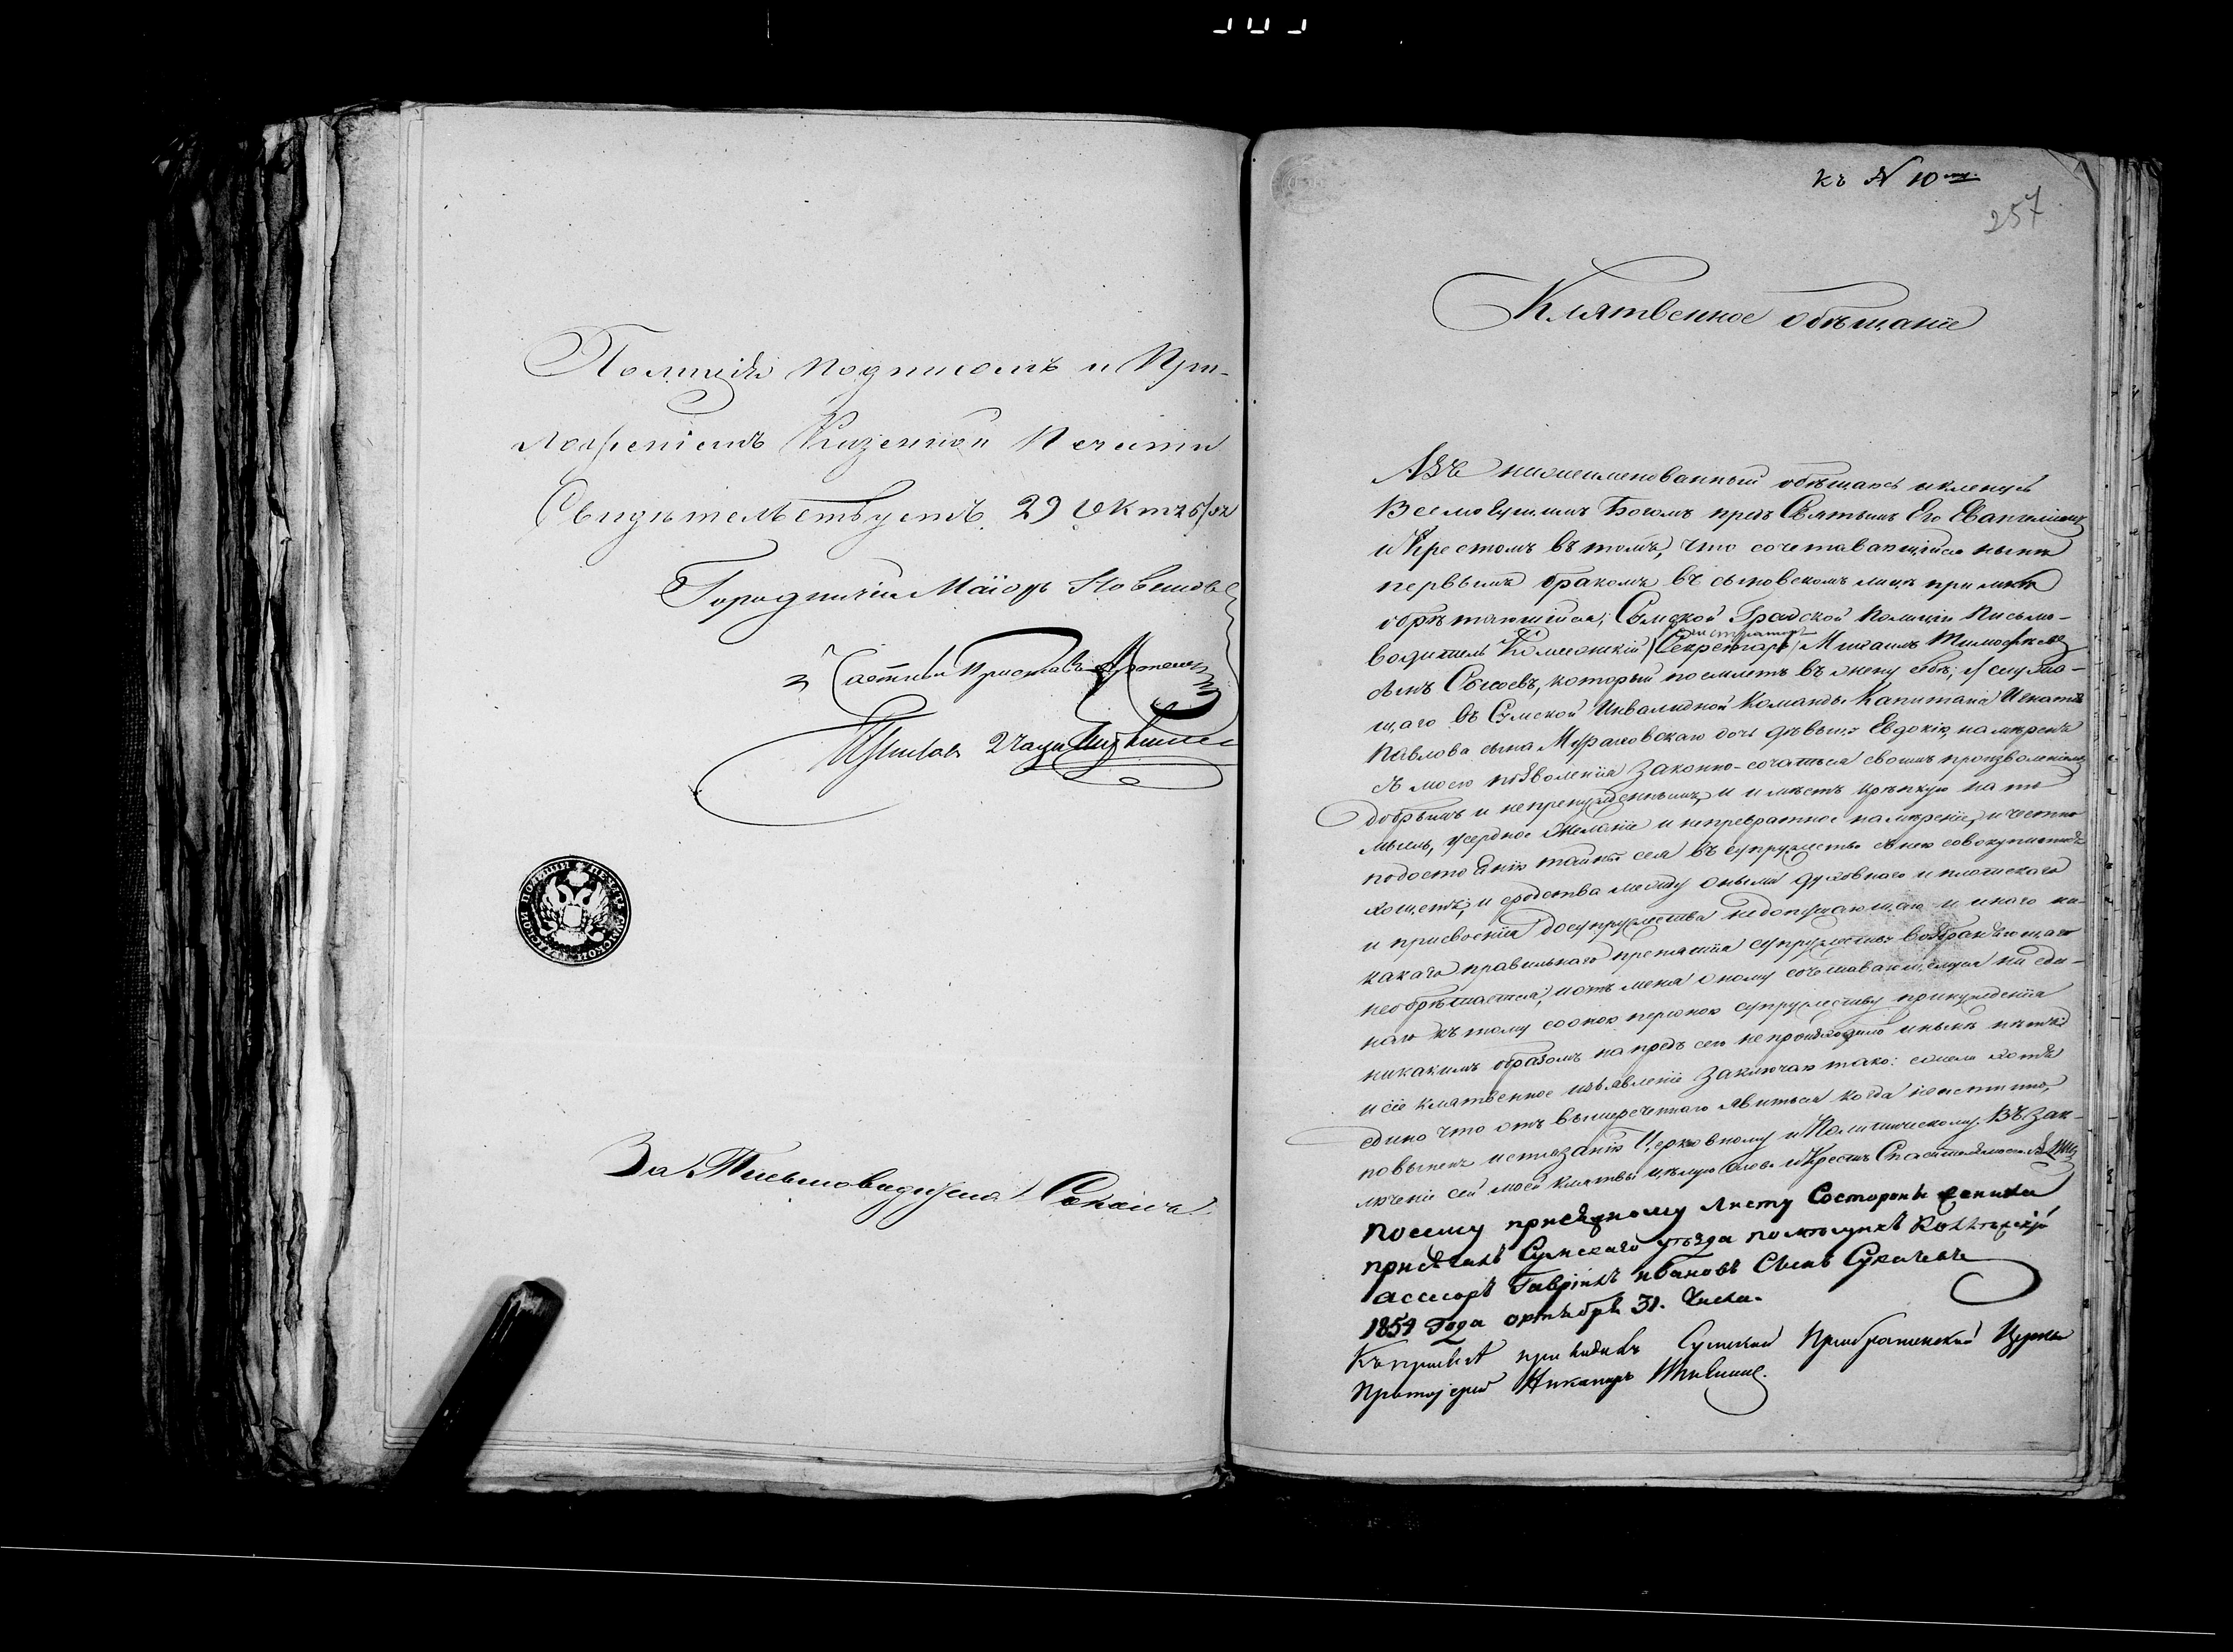 Полиція подписомъ и при-
ложеніемъ Казенной Печати
Свидѣтельствуетъ. 29 Октяб/
Городничій Маіоръ Новиковъ
Частный Приставъ
Приставъ 2 части
ПЕЧАТЬ СУМСКОЙ ГРАДСКОЙ ПОЛИЦІИ
За Письмоводителя Сокольс
къ N 10му.
257
Клятвенное обѣщаніе
Азъ нижеименованный обѣщаюсь и кленусь
Всемогущимъ Богомъ предъ Святымъ Его Евангеліемъ
и Крестомъ въ томъ, что сочетавающійся нынѣ
первымъ бракомъ въ сыновскомъ лицѣ при мнѣ
обрѣтающійся, Сумской Градской Полиціи Письмо-
регистраторъ
водитель Коллежскій /Секретарь/ Михаилъ Тимофѣевъ
сынъ Сысоевъ, который поемлетъ въ жену себѣ, служа-
щаго въ Сумской Инвалидной Команды Капитана Игнатія
Павлова сына Мурашовскаго дочь дѣвицу Евдокію, намѣренъ
съ моего позволенія законно-сочатися своимъ произволеніемъ
добрымъ и непренужденнымъ, и имѣетъ крѣпкую на то
мысль, усердное желаніе и непревратное намѣреніе, и честно
по достоянію тайны сея въ супружество съ нею совокупитися
хощетъ; и сродства между оными духовнаго и плотскаго
и присвоенія до супружества недопущающаго и инаго ни-
какаго правильнаго препятія супружеству возбраняющаго
необрѣтается, и отъ меня оному сочетавающемуся ни еди-
наго къ тому со оною персоною супружеству принужденія
никакимъ образомъ напредъ сего непроисходило и нынѣ нѣтъ;
и сіе клятвенное изъявленіе заключаю тако: ежели хотя
едино что отъ вышереченнаго явиться когда неистинно,
повиненъ истязанію Церковному и Политическому. Въ зак-
люченіе сей моей клятвы цѣлую слова и Крестъ Спасителя моего Аминь
Посему присяжному листу Состороны жениха
присягалъ Сумскаго уѣзда помѣщикъ Коллежскій
асесоръ Гавріилъ ивановъ Сынъ Сукачевъ
1854 Года октября 31. Числа.
Къ присягѣ приводилъ Сумской Преображенской Церкви
Протоіерей Никаноръ